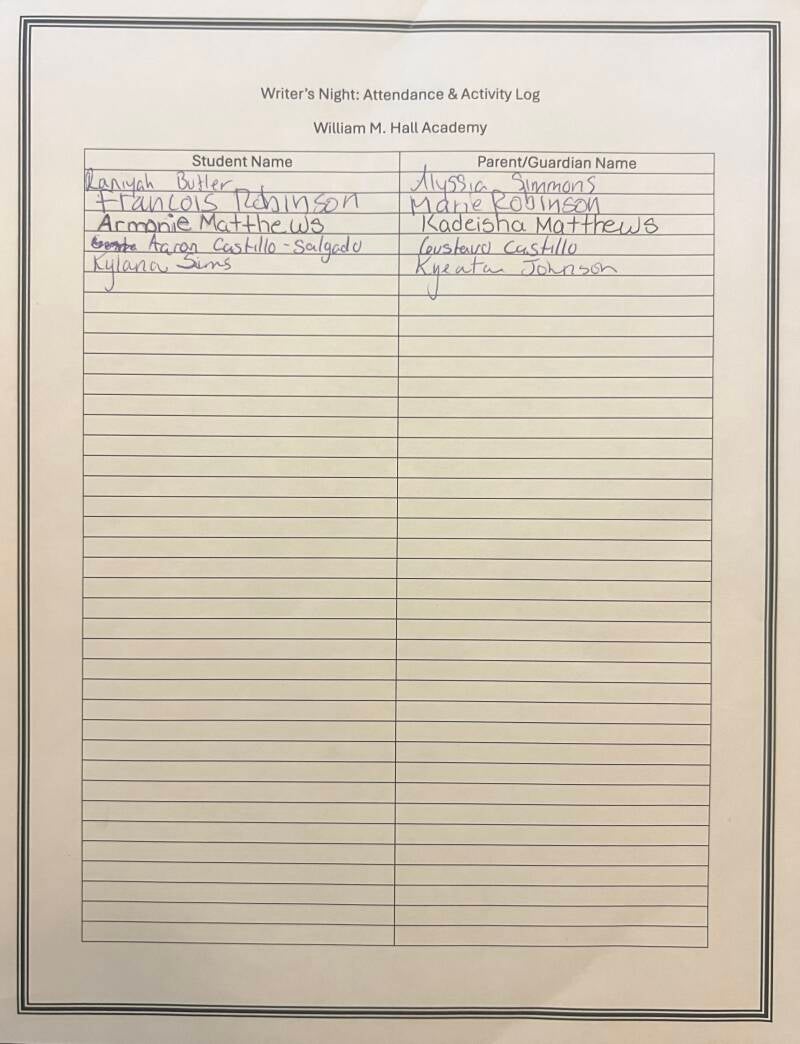 Writer's Night: Attendance & Activity Log
William M. Hall Academy
Student Name Parent/Guardian Name
Raniyah Butler Alyssia Simmons
Francois Robinson Marie Robinson
Armonie Matthews Kadeisha Matthews
Aaron Castillo-Salgado Gustavo Castillo
Kylana Sims Kyeata Johnson